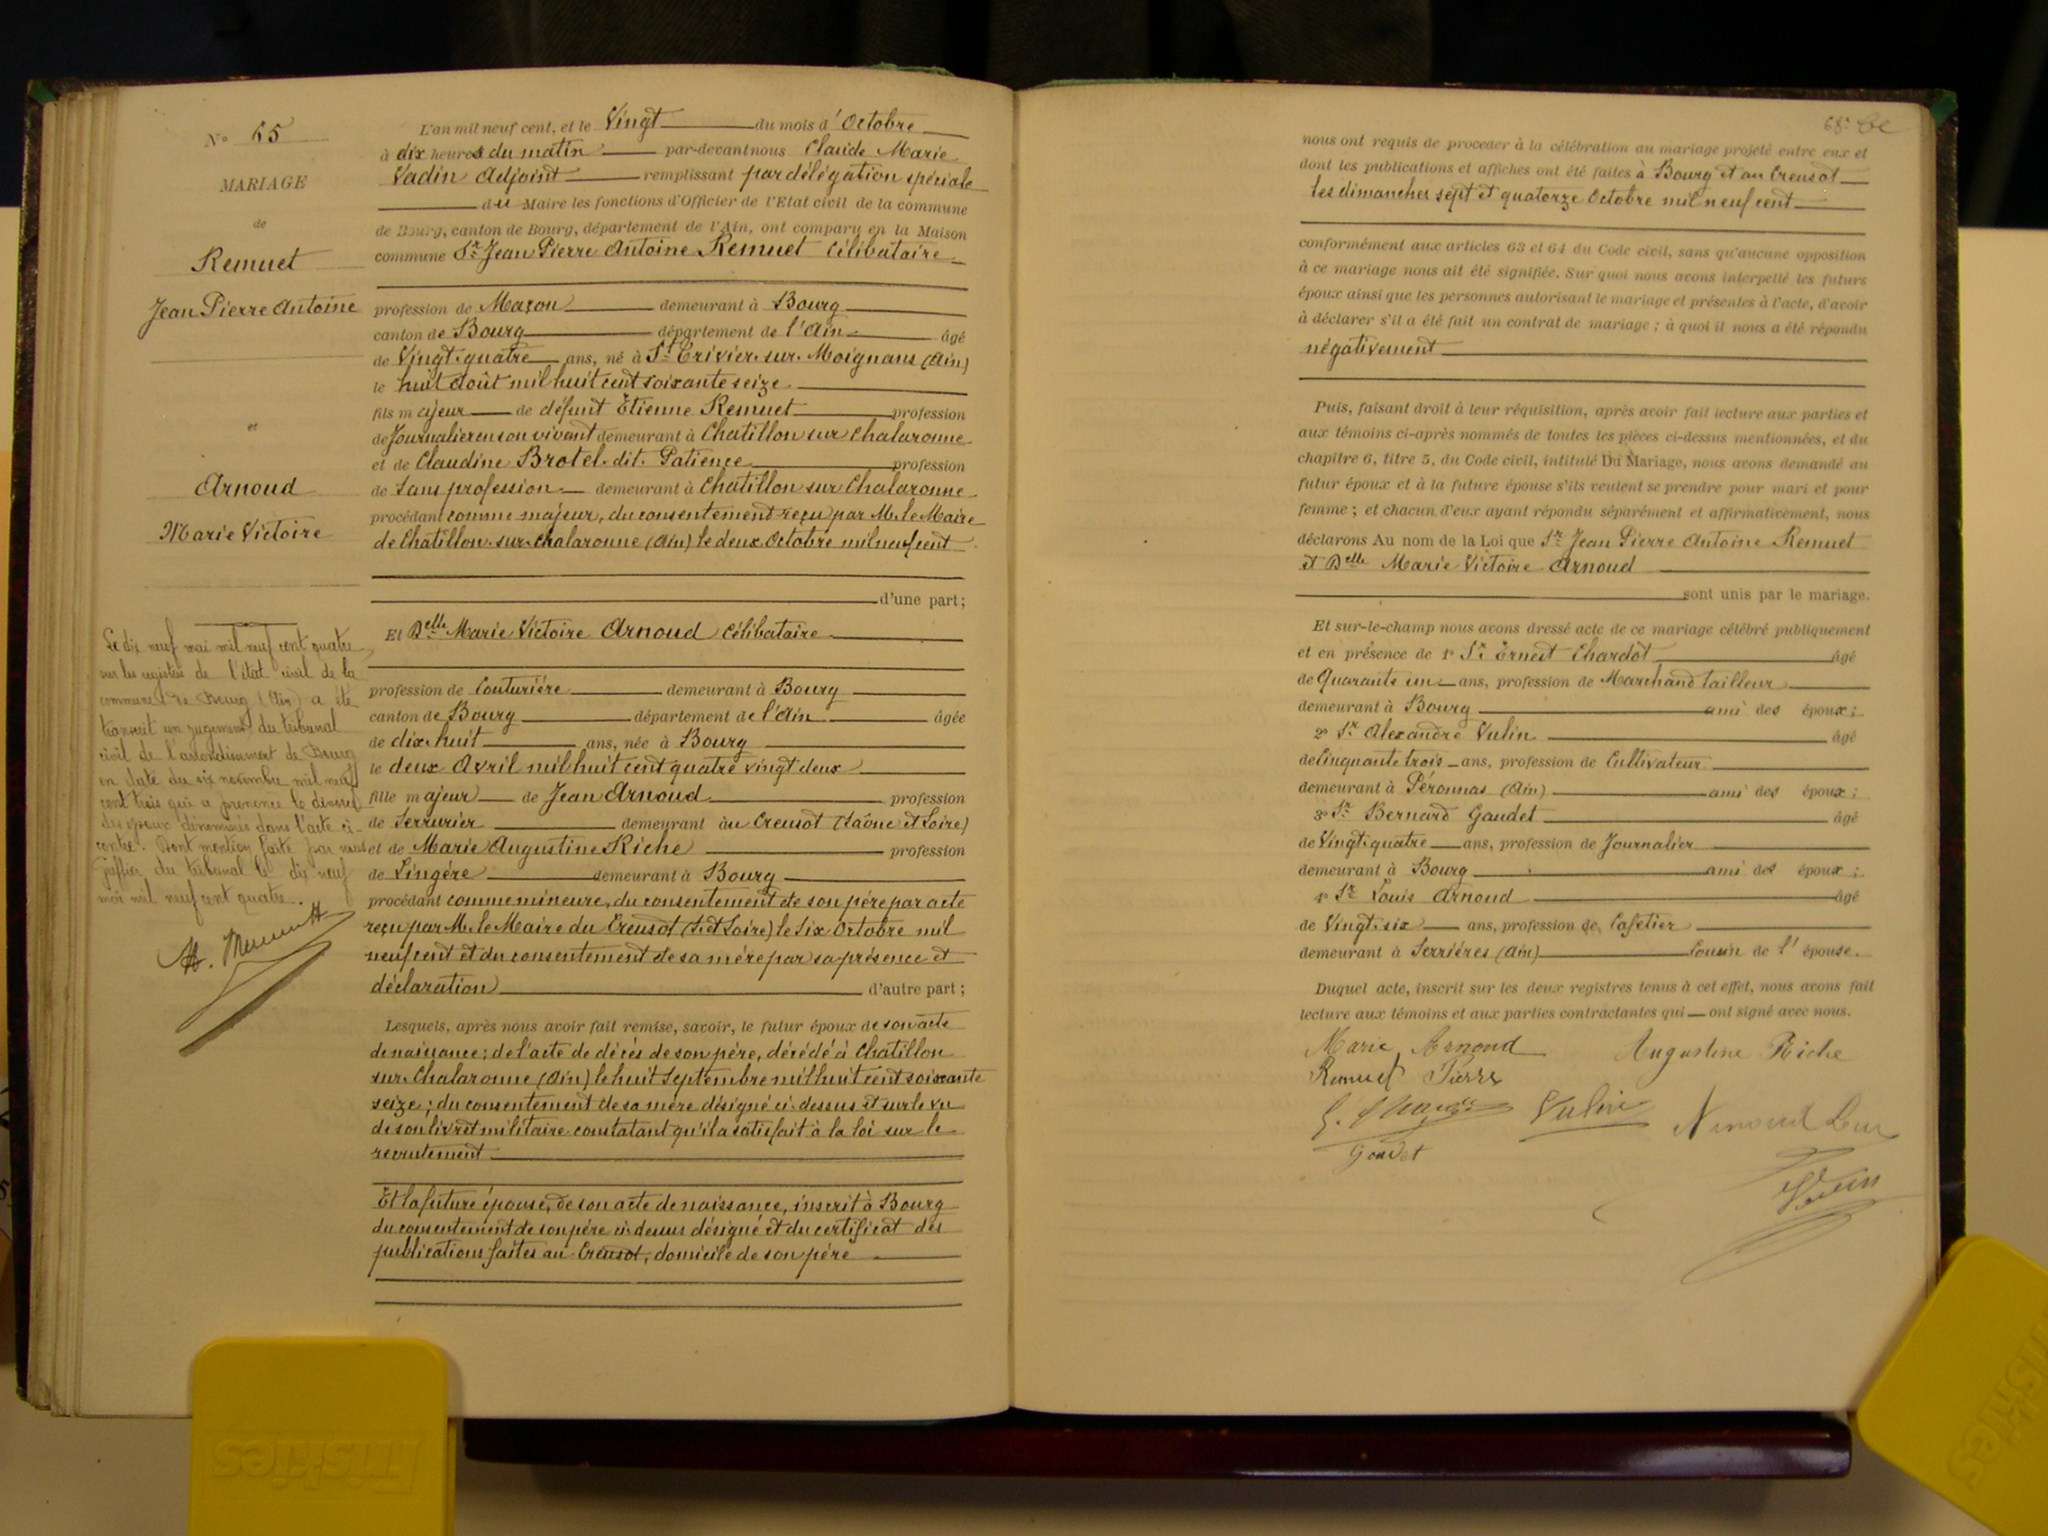 N° 65
MARIAGE
de
Remuet
Jean Pierre Antoine
et
Arnoud
Marie Victoire
Le dix neuf mai mil neuf cent quatre
sur les registres de l'état civil de la
commune de Bourg (Ain) a été
transcrit un jugement du tribunal
civil de l'arrondissement de Bourg
en date du six novembre mil neuf
cent trois qui a prononcé le divorce
des époux dénommés dans l'acte ci-
contre. Dont mention faite par nous
greffier du tribunal le dix neuf
mai mil neuf cent quatre.
L'an mil neuf cent, et le Vingt du mois d'Octobre
à dix heures du matin par-devant nous Claude Marie
Vadin Adjoint remplissant par délégation spéciale
du Maire les fonctions d'Officier de l'Etat civil de la commune
de Bourg, canton de Bourg, département de l'Ain, ont comparu en la Maison
commune Sr Jean Pierre Antoine Remuet Célibataire
profession de Maçon demeurant à Bourg
canton de Bourg département de l'Ain âgé
de Vingt-quatre ans, né à St Trivier-sur-Moignans (Ain)
le huit Août mil huit cent soixante seize
fils majeur de défunt Etienne Remuet profession
de Journalier en son vivant demeurant à Chatillon sur Chalaronne
et de Claudine Brotel-dit-Patience profession
de Sans profession demeurant à Chatillon sur Chalaronne
procédant comme majeur, du consentement reçu par M. le Maire
de Chatillon-sur-Chalaronne (Ain) le deux Octobre mil neuf cent
d'une part;
Et Delle Marie Victoire Arnoud Célibataire
profession de Couturière demeurant à Bourg
canton de Bourg département de l'Ain âgée
de dix-huit ans, née à Bourg
le deux Avril mil huit cent quatre vingt deux
fille majeur de Jean Arnoud profession
de Serrurier demeurant au Creusot (Saône et Loire)
et de Marie Augustine Riche profession
de Lingère demeurant à Bourg
procédant comme mineure, du consentement de son père par acte
reçu par M. le Maire du Creusot (S. et Loire) le Six Octobre mil
neuf cent et du consentement de sa mère par sa présence et
déclaration d'autre part;
Lesquels, après nous avoir fait remise, savoir, le futur époux de son acte
de naissance; de l'acte de décès de son père, décédé à Chatillon
sur-Chalaronne (Ain) le huit Septembre mil huit cent soixante
seize; du consentement de sa mère désigné ci-dessus et sur le vu
de son livret militaire constatant qu'il a satisfait à la loi sur le
recrutement
Et la future épouse, de son acte de naissance, inscrit à Bourg
du consentement de son père ci-dessus désigné et du certificat des
publications faites au Creusot, domicile de son père
nous ont requis de procéder à la célébration du mariage projeté entre eux et
dont les publications et affiches ont été faites à Bourg et au Creusot
les dimanches sept et quatorze Octobre mil neuf cent
conformément aux articles 63 et 64 du Code civil, sans qu'aucune opposition
à ce mariage nous ait été signifiée. Sur quoi nous avons interpellé les futurs
époux ainsi que les personnes autorisant le mariage et présentes à l'acte, d'avoir
à déclarer s'il a été fait un contrat de mariage; à quoi il nous a été répondu
négativement
Puis, faisant droit à leur réquisition, après avoir fait lecture aux parties et
aux témoins ci-après nommés de toutes les pièces ci-dessus mentionnées, et du
chapitre 6, titre 5, du Code civil, intitulé Du Mariage, nous avons demandé au
futur époux et à la future épouse s'ils veulent se prendre pour mari et pour
femme; et chacun d'eux ayant répondu séparément et affirmativement, nous
déclarons Au nom de la Loi que Sr Jean Pierre Antoine Remuet
et Delle Marie Victoire Arnoud
sont unis par le mariage.
Et sur-le-champ nous avons dressé acte de ce mariage célébré publiquement
et en présence de 1° Sr Ernest Chardot âgé
de Quarante un ans, profession de Marchand tailleur
demeurant à Bourg ami des époux;
2° Sr Alexandre Vulin âgé
de Cinquante trois ans, profession de Cultivateur
demeurant à Péronnas (Ain) ami des époux;
3° Sr Bernard Gaudet âgé
de Vingt-quatre ans, profession de Journalier
demeurant à Bourg ami des époux;
4° Sr Louis Arnoud âgé
de Vingt-six ans, profession de Cafetier
demeurant à Serrières (Ain) Cousin de l'épouse.
Duquel acte, inscrit sur les deux registres tenus à cet effet, nous avons fait
lecture aux témoins et aux parties contractantes qui ont signé avec nous.
Marie Arnoud Augustine Riche
Remuet Pierre
Vulin
Gaudet
Friskies
Friskies